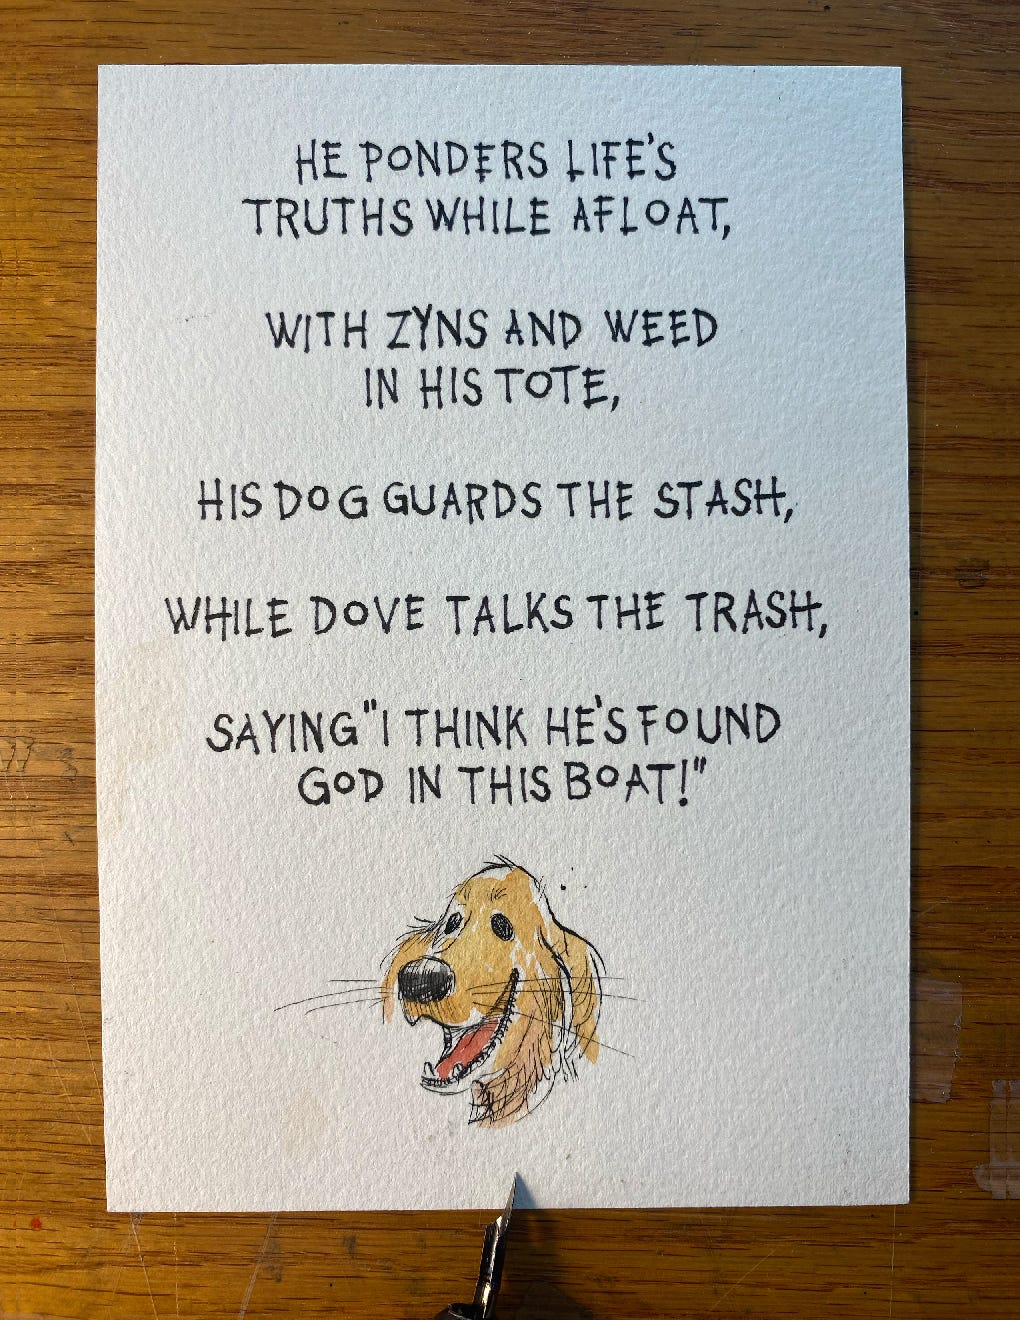 HE PONDERS LIFE'S
TRUTHS WHILE AFLOAT,
WITH ZYNS AND WEED
IN HIS TOTE,
HIS DOG GUARDS THE STASH,
WHILE DOVE TALKS THE TRASH,
SAYING "I THINK HE'S FOUND
GOD IN THIS BOAT!"